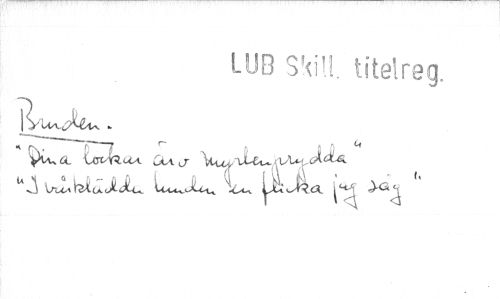 LUB Skill. titelreg.
Bruden.
"Dina lockar äro myrtenprydda"
"I vårklädda lunden en flicka jag såg"